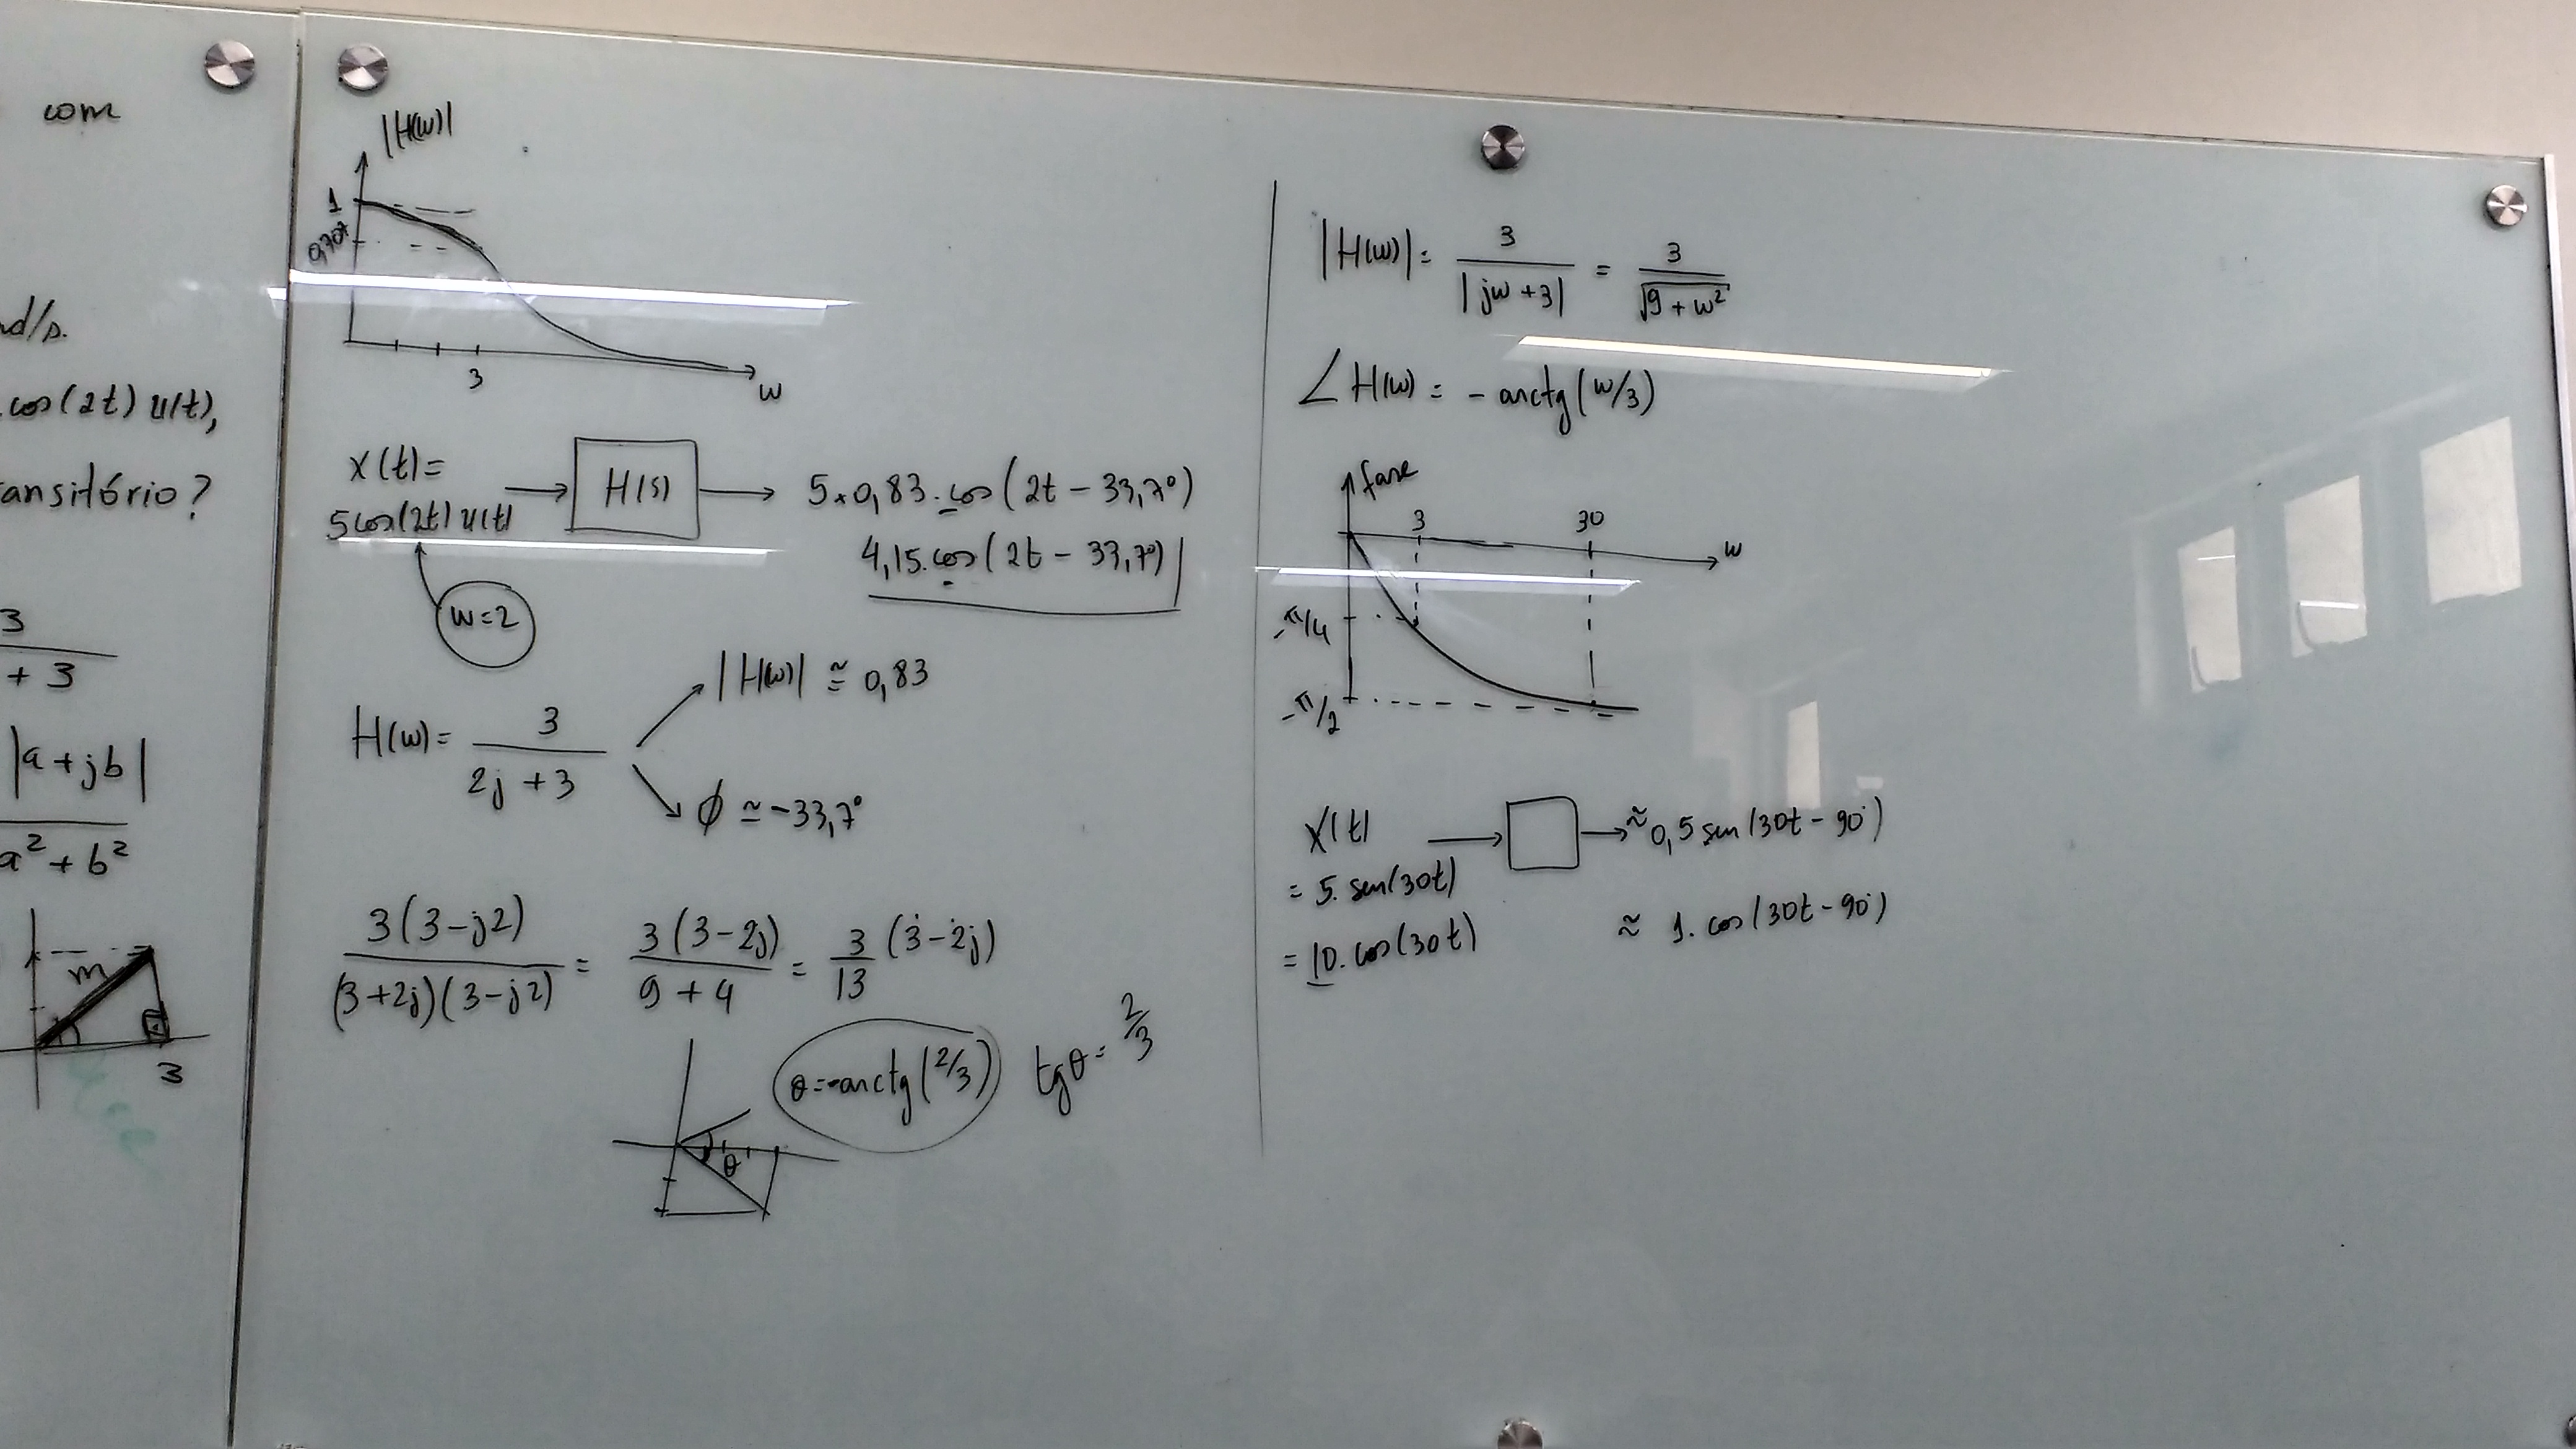 com
nd/s.
cos(2t) u(t),
ansitório?
3
+ 3
|a+jb|
a² + b²
m
3
|H(w)|
1
0,707
3
w
x(t)=
5cos(2t) u(t)
H(s)
5*0,83.cos(2t - 33,7°)
4,15.cos(2t - 33,7°)
w=2
H(w)= 3 / (2j + 3)
|H(w)| ≅ 0,83
ϕ ≃ -33,7°
3(3-j2) / (3+2j)(3-j2) = 3(3-2j) / (9 + 4) = 3/13 (3-2j)
θ=-arctg(2/3)
tgθ = 2/3
θ
|H(w)| = 3 / |jw+3| = 3 / √(9+w²)
∠H(w) = - arctg(w/3)
fase
3
30
w
-π/4
-π/2
x(t)
≈ 0,5 sen(30t - 90°)
= 5. sen(30t)
= 10. cos(30t)
≈ 1. cos(30t - 90°)